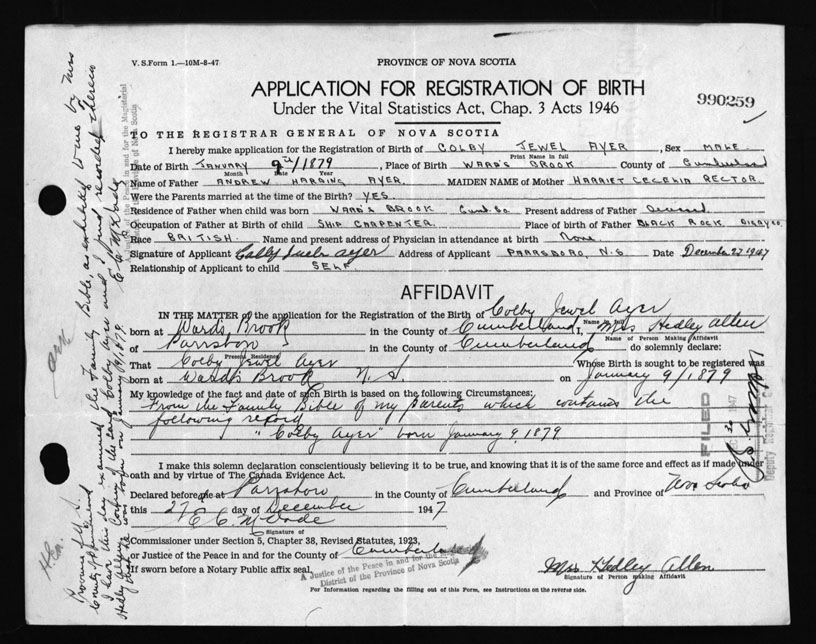 V. S. Form 1.—10M-8-47
PROVINCE OF NOVA SCOTIA
APPLICATION FOR REGISTRATION OF BIRTH
Under the Vital Statistics Act, Chap. 3 Acts 1946
990259
TO THE REGISTRAR GENERAL OF NOVA SCOTIA
I hereby make application for the Registration of Birth of COLBY JEWEL AYER, Sex MALE
Print Name in full
Date of Birth JANUARY 9th/1879, Place of Birth WARD'S BROOK County of Cumberland
Month Date Year
Name of Father ANDREW HARDING AYER MAIDEN NAME of Mother HARRIET CECELIA RECTOR
Were the Parents married at the time of the Birth? YES.
Residence of Father when child was born WARD'S BROOK Cumb. Co. Present address of Father Deceased
Occupation of Father at Birth of child SHIP CARPENTER Place of birth of Father BLACK ROCK DIGBY CO.
Race BRITISH. Name and present address of Physician in attendance at birth None.
Signature of Applicant Colby Jewel Ayer Address of Applicant PARRSBORO, N.S. Date December 27 1947
Relationship of Applicant to child SELF
AFFIDAVIT
IN THE MATTER of the application for the Registration of Birth of Colby Jewel Ayer
Name in full
born at Wards Brook in the County of Cumberland I, Mrs Hedley Allen
Name of Person Making Affidavit
of Parrsboro in the County of Cumberland do solemnly declare:
Present Residence
That Colby Jewel Ayer Whose Birth is sought to be registered was
born at Wards Brook N. S. on January 9/1879
My knowledge of the fact and date of such Birth is based on the following Circumstances:
From the Family Bible of my parents which contains the
following record
"Colby Ayer" born January 9, 1879
I make this solemn declaration conscientiously believing it to be true, and knowing that it is of the same force and effect as if made under
oath and by virtue of The Canada Evidence Act.
Declared before me at Parrsboro in the County of Cumberland and Province of Nova Scotia
this 27 day of December 1947
E. C. McDade
Signature of
Commissioner under Section 5, Chapter 38, Revised Statutes, 1923,
or Justice of the Peace in and for the County of Cumberland
If sworn before a Notary Public affix seal.
A Justice of the Peace in and for the
District of the Province of Nova Scotia
Mrs Hedley Allen
Signature of Person making Affidavit
For Information regarding the filling out of this Form, see Instructions on the reverse side.
Province of N. S.
County of Cumberland
I have this day examined the Family Bible as exhibited to me by Mrs
Hedley Allen of the said Colby Ayer and I find recorded therein
was born on January 9/1879 E C McDade
FILED
1947